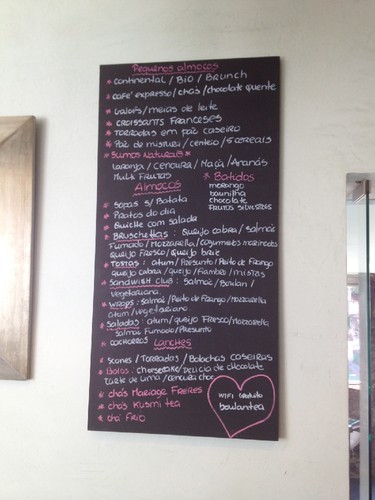 Pequenos almoços
* Continental / Bio / Brunch
* café expresso / chás / chocolate quente
* galois / meias de leite
* CROISSANTS FRANCESES
* TORRADAS em pão caseiro
* Pão de mistura / centeio / 5 cereais
* Sumos Naturais *
Laranja / Cenoura / Maçã / Ananás
Multi Frutas
* Batidos
morango
baunilha
chocolate
FRUTOS SILVESTRES
Almoços
* Sopas s/ Batata
* Pratos do dia
* Quiche com salada
* Bruschettas : Queijo cabra / Salmão
Fumado / Mozzarella / Legumes marinados
Queijo Fresco / Queijo brie
* TOSTAS : atum / Presunto / Peito de Frango
queijo cabra / queijo / Fiambre / mistas
* Sandwish Club : Salmão /
vegetariana
* WRAPS : Salmão / Peito de Frango / mozzarella
atum / vegetariano
* Saladas : atum / queijo Fresco / Mozzarella
Salmão Fumado / Presunto
* CACHORROS
Lanches
* Scones / Torradas / Bolachas caseiras
* Bolos : Cheesecake / Delicia de chocolate
tarte de Lima / cenoura choc
* chás Mariage Freres
* chás Kusmi tea
* chá Frio
WIFI Gratuito
boulantea